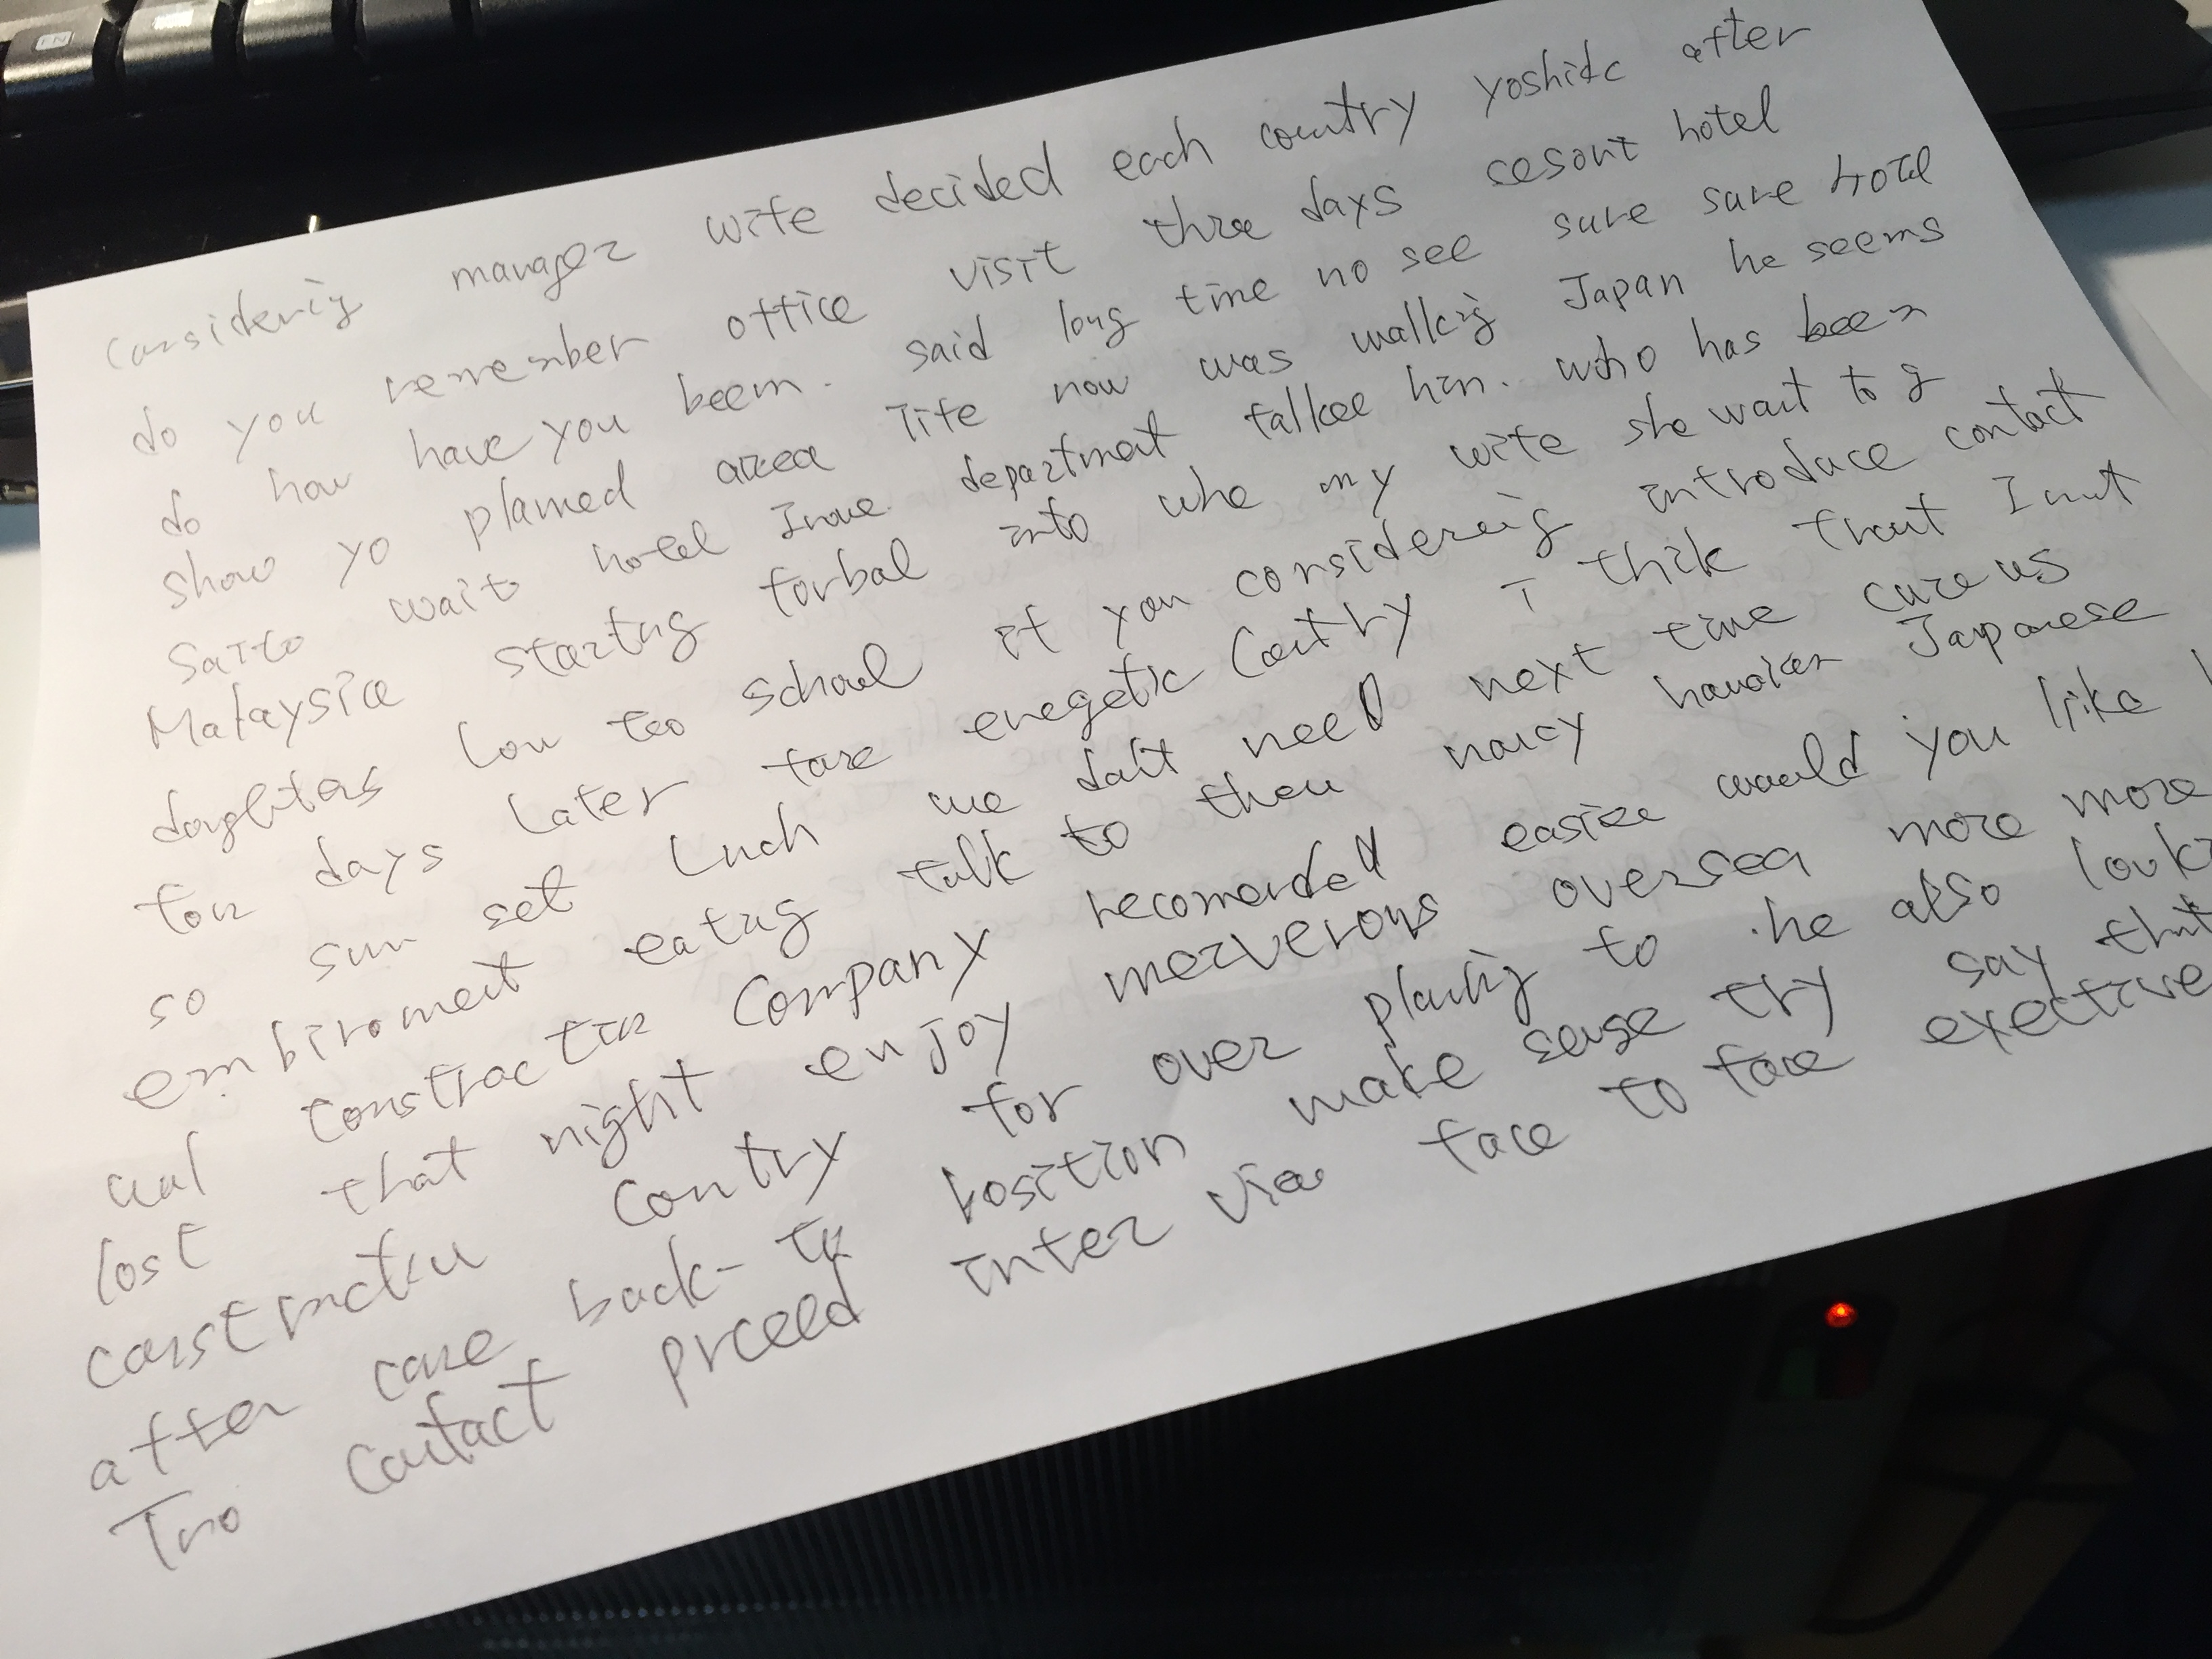 considerig manager wife decided each country yoshida after
do you remember office visit three days resort hotel
do how have you beem. said long time no see sure sure hotel
show yo planned area life now was walkig Japan he seems
Saito wait hotel Inoue department talked him. who has been
Malaysia startng forbal into who my wife she want to g
doughters low too school if you considereig introduce contact
for days later fare enegetic Contry I thik that I
so sun set Lnch we don't need next time care us
embiroment eatng talk to then hawaian Japanese
and constractin company recomended easier would you like
lost that night enjoy merverous oversea more more
constructin contry for over planig to he also look
after care back- position make sense try say that
Tno contact prceed inter view face to face exective